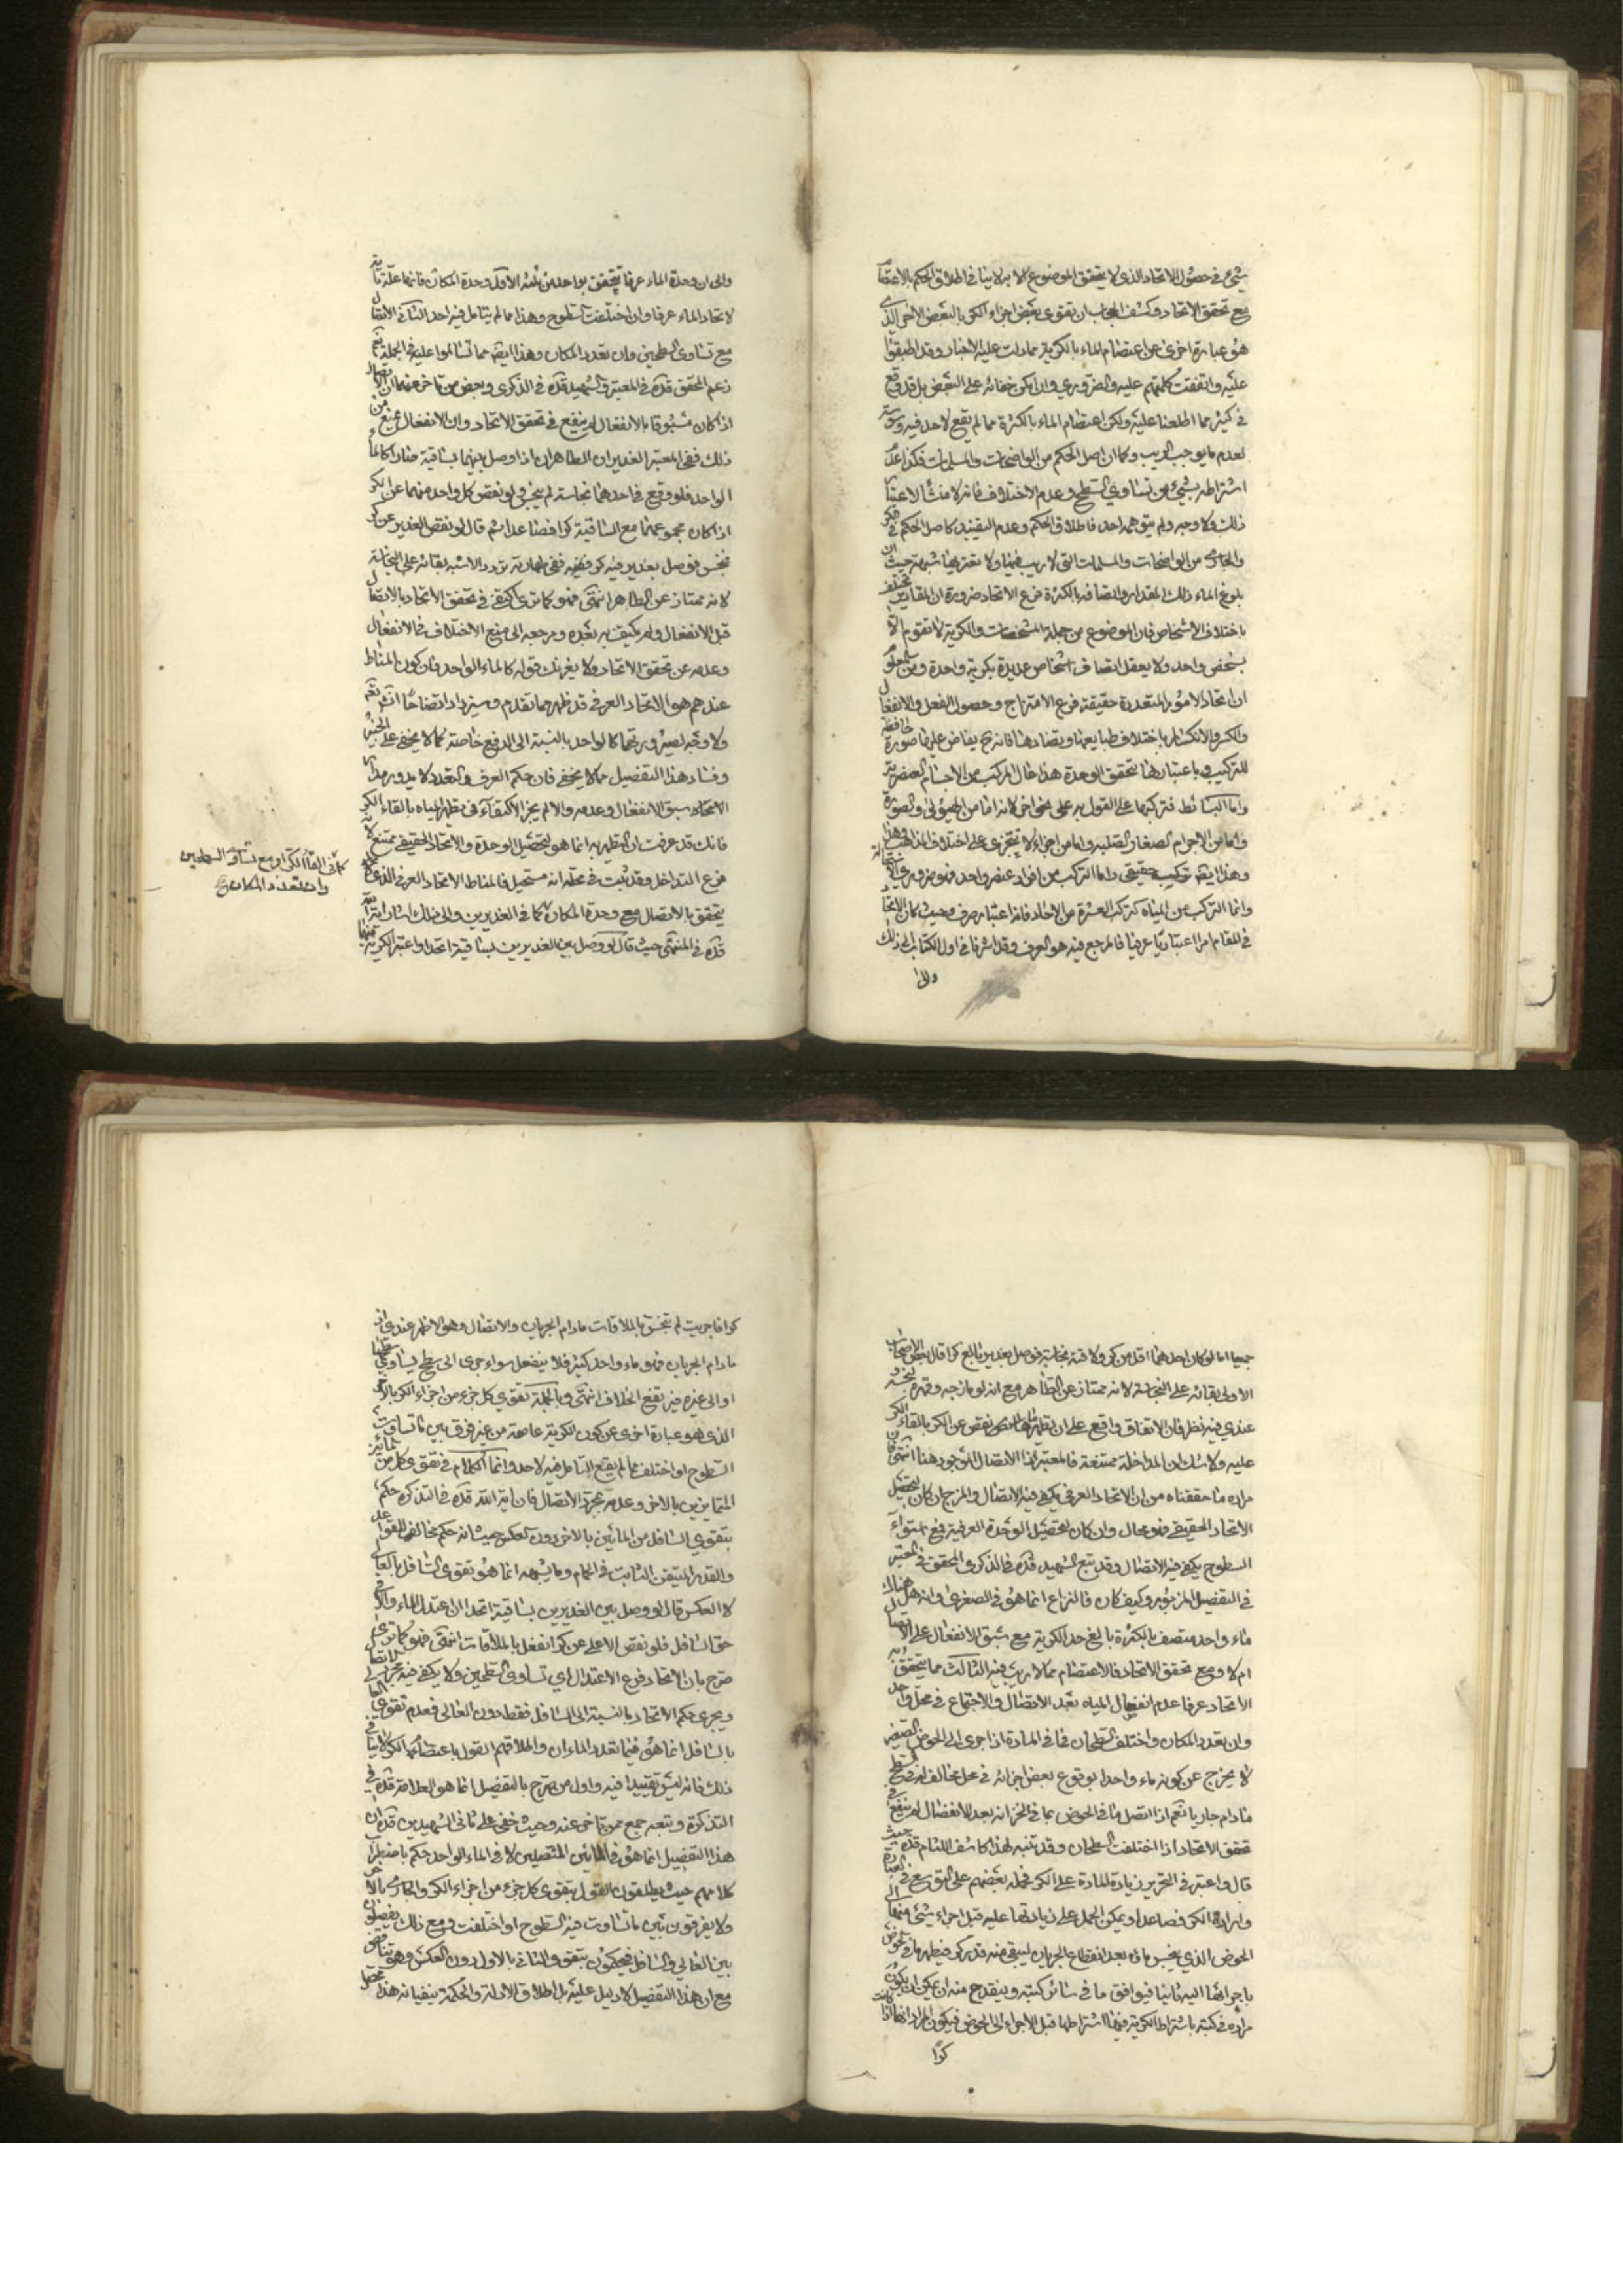 شيئ في حصول الاتحاد الذي لا يتحقق الموضوع الا به لا ينافي اطلاق الحكم بالاعتصام
مع تحقق الاتحاد وكشف الحجاب ان تقوى بعض اجزاء الكر بالبعض الاخر الذي
هو عبارة اخرى عن اعتصام الماء بالكرية مما دلت عليه الاخبار وقد اطبقوا
عليه واتفقت كلمتهم عليه والضروري وان امكن خفائه على البعض بل قد وقع
في كثير مما اطلعنا عليه ولكن اعتصام الماء بالكثرة مما لم يقع لاحد فيه
لعدم ما يوجب الريب وكما ان اصل الحكم من الواضحات والمسلمات فكذا عدم
اشتراطه بشيئ من تساوي السطوح وعدم الاختلاف فانه لا منشأ لاعتبار
ذلك ولا وجه ولم يتوهمه احد فاطلاق الحكم وعدم التقييد كاصل الحكم في الكر
والجاري من الواضحات والمسلمات التي لا ريب فيها ولا تعتريها شبهة حيث ان
بلوغ الماء ذلك المقدار واتصافه بالكثرة فرع الاتحاد ضرورة ان المقادير تختلف
باختلاف الاشخاص فان الموضوع من جملة المشخصات والكرية لا تقوم الا
بشخص واحد ولا يعقل اتصاف اشخاص عديدة بكرية واحدة ومن المعلوم
ان اتحاد الامور المتعددة حقيقة فرع الامتزاج وحصول الفعل والانفعال
والكسر والانكسار باختلاف طبايعها وتضادها فانه ح يفاض عليها صورة حافظة
للتركيب وباعتبارها تتحقق الوحدة هذا حال المركب من الاجسام العنصرية
واما البسائط فتركبها على القول به على نحو اخر لانه اما من الهيولى والصورة
واما من الاجرام الصغار الصلبة واما من اجزاء لا تتجزى على اختلاف المذاهب
وهذا ايضا تركيب حقيقي واما التركب من افراد عنصر واحد فهو ضروري الاستحالة
وانما التركب من المياه كتركب العشرة من الاحاد فانه اعتبار صرف وحيث كان الاتحاد
في المقام امرا اعتباريا عرفيا فالمرجع فيه هو العرف وقد اشرنا في اول الكتاب الى ذلك
والى ان وحدة الماء عرفا يتحقق بواحد من ثلثة الاول وحدة المكان فانها علة تامة
لاتحاد الماء عرفا وان اختلفت السطوح وهذا مما لم يتامل فيه احد الثاني الاتصال
مع تساوي السطحين وان تعدد المكان وهذا ايضا مما تسالموا عليه في الجملة نعم
زعم المحقق قده في المعتبر والشهيد قده في الذكرى وبعض من تاخر عنهما ان الاتصال
اذا كان مسبوقا بالانفعال لم ينفع في تحقق الاتحاد وان الانفعال يمنع من
ذلك ففي المعتبر الغديران الطاهران اذا وصل بينهما بساقية صارا كالماء
الواحد فلو وقع في احدهما نجاسة لم ينجس ولو نقص كل واحد منهما عن الكر
اذا كان مجموعهما مع الساقية كرا فصاعدا ثم قال لو نقص الغدير عن كر
فنجس فوصل بغدير فيه كر ففي طهارته تردد والاشبه بقائه على النجاسة
لانه ممتاز عن الطاهر انتهى فهو كما ترى اكتفى في تحقق الاتحاد بالاتصال
قبل الانفعال ولم يكتف به بعده ومرجعه الى منع الاختلاف في الانفعال
وعدمه عن تحقق الاتحاد ولا يغرنك قوله كالماء الواحد فان كون المناط
عندهم هو الاتحاد العرفي قد ظهر مما تقدم وسيزداد اتضاحا انشاء الله تعالى
ولا وجه لصيرورتهما كالواحد بالنسبة الى الدفع خاصة كما لا يخفى على الخبير
وفساد هذا التفصيل مما لا يخفى فان حكم العرف والتعدد لا يدور مدار
الاتحاد سبق الانفعال وعدمه والا لم يجز الاكتفاء في تطهر المياه بالقاء الكر
فانك قد عرفت ان التطهير به انما هو لتحصيل الوحدة والاتحاد الحقيقي ممتنع لانه
فرع التداخل وقد ثبت في محله انه مستحيل فالمناط الاتحاد العرفي الذي كما
يتحقق بالاتصال مع وحدة المكان كما في الغديرين والى ذلك اشار اية الله
قده في المنتهى حيث قال لو وصل بين الغديرين بساقية اتحدا واعتبر الكرية فيهما
كما في القاء الكر او مع تساوي السطحين
وان تعدد المكان
جميعا اما لو كان احدهما اقل من كر ولاقته نجاسة فوصل بغدير بالغ كرا قال بعض الاصحاب
الاولى بقائه على النجاسة لانه ممتاز عن الطاهر مع انه لو مازجه وقهره لنجسه و
عندي فيه نظر فان الاتفاق واقع على ان تطهير ما نقص عن الكر بالقاء الكر
عليه ولا شك ان المداخلة ممتنعة فالمعتبر اذا الاتصال الموجود هنا انتهى
مراده ما حققناه من ان الاتحاد العرفي يكفي فيه الاتصال والمزج ان كان لتحصيل
الاتحاد الحقيقي فهو محال وان كان لتحصيل الوحدة العرفية فمع استواء
السطوح يكفي فيه الاتصال وقد تبع الشهيد قده في الذكرى المحقق في المعتبر
في التفصيل المزبور وكيف كان فالنزاع انما هو في الصغرى وانه هل هناك
ماء واحد متصف بالكثرة بالغ حد الكرية مع سبق الانفعال على الاتصال
ام لا ومع تحقق الاتحاد فالاعتصام مما لا ريب فيه الثالث مما يتحقق به
الاتحاد عرفا عدم انفصال المياه بعد الاتصال والاجتماع في محل واحد
وان تعدد المكان واختلف السطحان فما في المادة اذا جرى الى الحوض الصغير
لا يخرج عن كونه ماء واحدا بوقوع بعض اجزائه في محل مخالف لسطح
ما دام جاريا نعم اذا اتصل ما في الحوض بما في الخزانة بعد الانفصال لم ينفع في
تحقق الاتحاد اذا اختلفت السطحان وقد تنبه لهذا كاشف اللثام قده حيث
قال واعتبر في التحرير زيادة المادة على الكر فحمله بعضهم على التوسع في العبارة
وارادة الكر فصاعدا ويمكن الحمل على زيادتها عليه قبل اجراء شيئ منها الى
الحوض الذي ينجس ماؤه بعد انقطاع الجريان ليبقى منه قدر كر فيطهر ما في الحوض
باجرائها اليه ثانيا فيوافق ما في سائر كتبه وينقدح منه ان يمكن ان يكون
مراده في كتبه باشتراط الكرية فيها اشتراطها قبل الاجراء الى الحوض فيكون المراد انها اذا كانت
كرا فاجريت لم تنجس بالملاقات مادام الجريان والاتصال وهو الاظهر عندي اذ
مادام الجريان فهو ماء واحد كثير فلا ينفعل سواء جرى الى سطح يساوي سطحها
او الى غيره فيرتفع الخلاف انتهى وبالجملة تقوي كل جزء من اجزاء الكر بالاخر
الذي هو عبارة اخرى عن كون الكرية عاصمة من غير فرق بين ما تساوت
السطوح او اختلفت مما لم يقع التامل فيه لاحد وانما الكلام في تقوي كل من المائين
المتمايزين بالاخر وعدمه بمجرد الاتصال فان اية الله قده في التذكرة حكم
بتقوي السافل من المائين بالاخر دون العكس حيث انه حكم مخالف للقواعد
والقدر المتيقن الثابت في الحمام وما يشبهه انما هو تقوي السافل بالعالي
لا العكس قال لو وصل بين الغديرين بساقية اتحدا ان اعتدل الماء والا في
حق السافل فلو نقص الاعلى عن كر انفعل بالملاقات انتهى فهو كما ترى
صرح بان الاتحاد فرع الاعتدال اي تساوي السطحين ولا يكفي فيه مجرد الاتصال
ويجري حكم الاتحاد بالنسبة الى السافل فقط دون العالي فعدم تقوي العالي
بالسافل انما هو فيما تعدد الماءان واطلاقهم القول باعتصام الكر لا ينافي
ذلك فانه ليس تقييدا فيه واول من صرح بالتفصيل انما هو العلامة قده في
التذكرة وتبعه جمع ممن تاخر عنه وحيث خفى على ثاني الشهيدين قده ان
هذا التفصيل انما هو في المائين المتصلين لا في الماء الواحد حكم باضطراب
كلامهم حيث يطلقون القول بتقوي كل جزء من اجزاء الكر والجاري بالاخر
ولا يفرقون بين ما تساوت فيه السطوح او اختلفت ومع ذلك يفصلون
بين العالي والسافل فيحكمون بتقوي الثاني بالاول دون العكس وهو تناقض
مع ان هذا التفصيل لا دليل عليه بل اطلاق الادلة والحكمة ينفيانه هذا محصل